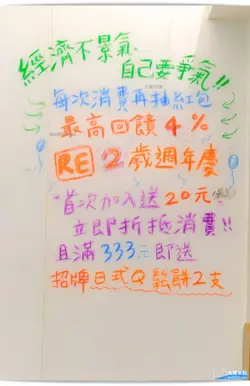 經濟不景氣
自己要爭氣!!
每次消費再抽紅包
最高回饋4%
RE 2歲週年慶
首次加入送20元
立即折抵消費!!
且滿333元即送
招牌日式Q鬆餅2支